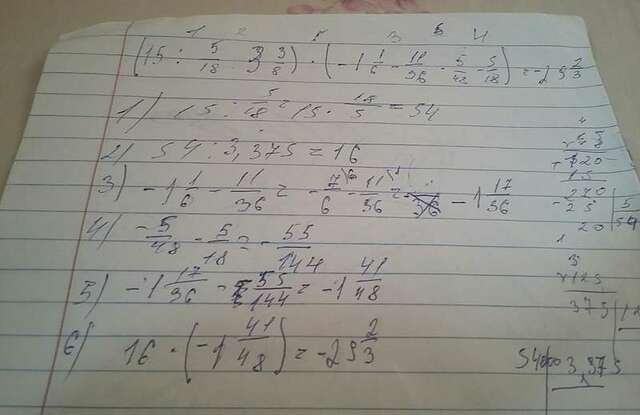 1 2 5 3 5 4
(15 : 5/18 : 3 3/8) · (-1 1/6 - 11/36 - 5/48 - 5/18) = -29 2/3
1) 15 : 5/18 = 15 · 18/5 = 54
2) 54 : 3,375 = 16
3) -1 1/6 - 11/36 = -7/6 - 11/36 = - -1 17/36
4) -5/48 - 5/18 = -55/144
5) -1 17/36 - 55/144 = -1 41/48
6) 16 · (-1 41/48) = -29 2/3
120
15
270
25
20
5
54
3
× 125
375
54000 3,375